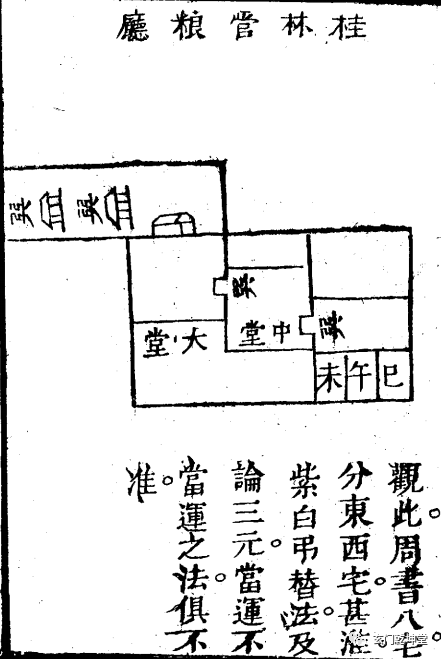 桂林管粮廳
巽
巽
巽
巽
大堂
中堂
巳
午
未
觀此。周書八宅。
分東西宅。甚准。
紫白弔替法。及
論三元。當運不
當運之法。俱不
准。
玄门乾坤堂